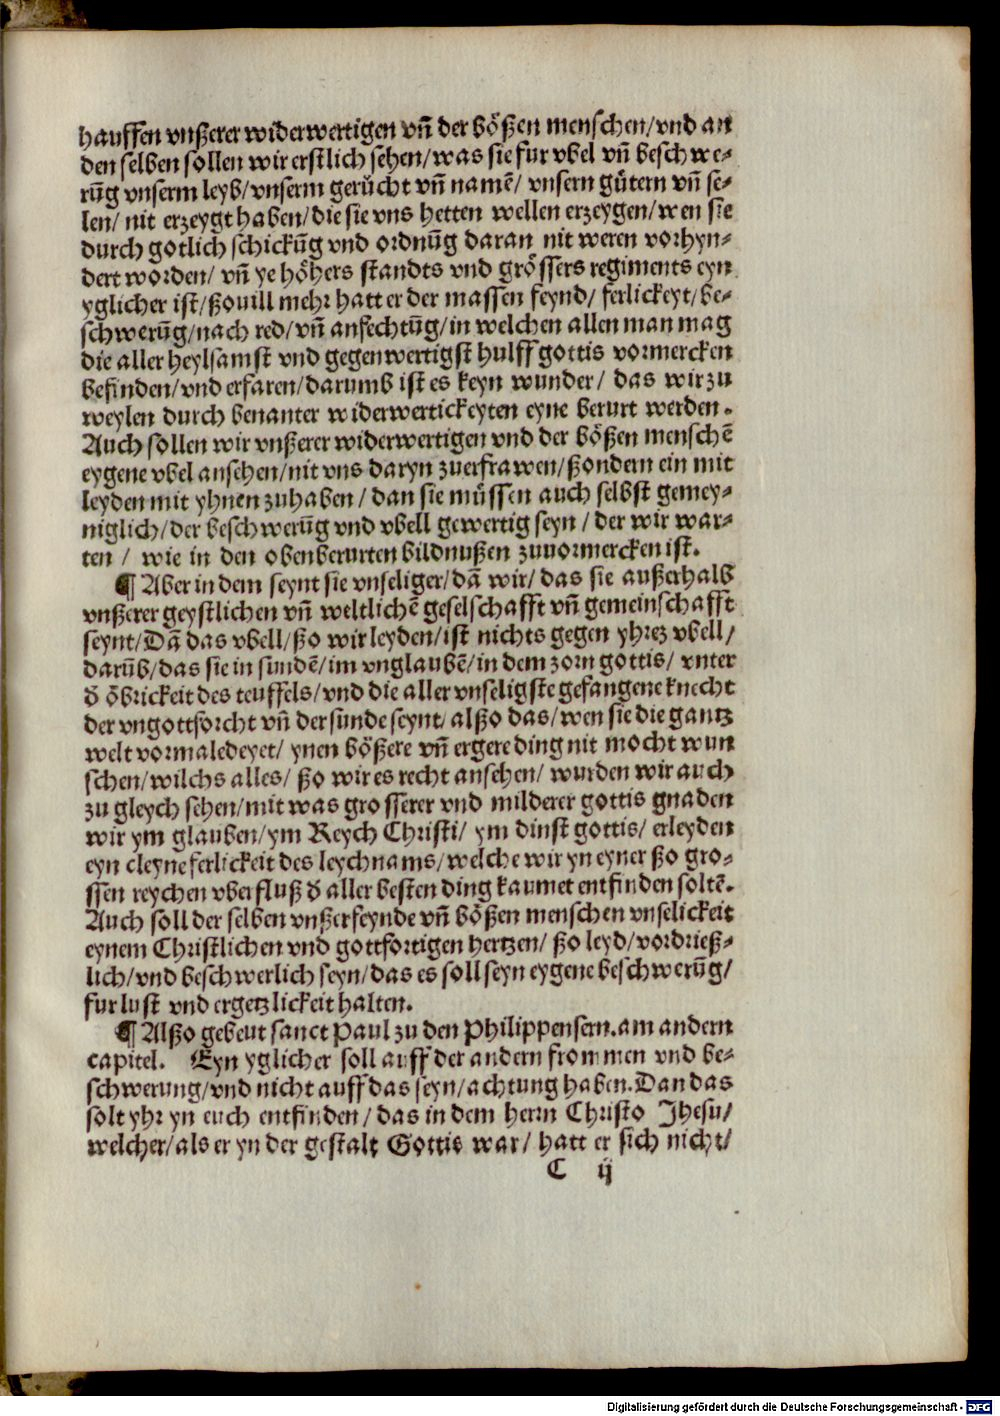 hauffen vnßerer widerwertigen vn̄ der bößen menschen/vnd an
den selben sollen wir erstlich sehen/was sie fur vbel vn̄ beschwe⸗
rūg vnserm leyb/vnserm gerücht vn̄ namē/ vnsern gütern vn̄ se⸗
len/ nit erzeygt haben/die sie vns hetten wellen erzeygen/wen sie
durch gotlich schickūg vnd ordnūg daran nit weren vorhyn⸗
dert worden/ vn̄ ye höhers standts vnd grössers regiments eyn
yglicher ist/ßouill mehr hatt er der massen feynd/ ferlickeyt/be⸗
schwerūg/nach red/vn̄ anfechtūg/in welchen allen man mag
die aller heylsamst vnd gegenwertigst hulff gottis vormercken
befinden/vnd erfaren/darumb ist es keyn wunder/ das wir zu
weylen durch benanter widerwertickeyten eyne berurt werden.
Auch sollen wir vnßerer widerwertigen vnd der bößen menschē
eygene vbel ansehen/nit vns daryn zuerfrawen/ßondern ein mit
leyden mit yhnen zuhaben/ dan sie müssen auch selbst gemey⸗
niglich/der beschwerūg vnd vbell gewertig seyn/ der wir war⸗
ten/ wie in den obenberurten bildnußen zuuormercken ist.
¶ Aber in dem seynt sie vnseliger/dā wir/ das sie außerhalb
vnßerer geystlichen vn̄ weltlichē geselschafft vn̄ gemeinschafft
seynt/Dā das vbell/ßo wir leyden/ist nichts gegen yhrez vbell/
darūb/das sie in sundē/im vnglaubē/in dem zorn gottis/ vnter
d̄ öbrickeit des teuffels/vnd die aller vnseligste gefangene knecht
der vngottforcht vn̄ der sunde seynt/ alßo das/wen sie die gantz
welt vormaledeyet/ ynen bößere vn̄ ergere ding nit mocht wun
schen/wilchs alles/ ßo wir es recht ansehen/ wurden wir auch
zu gleych sehen/mit was grosserer vnd milderer gottis gnaden
wir ym glauben/ym Reych Christi/ ym dinst gottis/ erleyden
eyn cleyne ferlickeit des leychnams/welche wir yn eyner ßo gro⸗
ssen reychen vberfluß d̄ aller besten ding kaumet entfinden soltē.
Auch soll der selben vnßer feynde vn̄ bößen menschen vnselickeit
eynem Christlichen vnd gottfortigen hertzen/ ßo leyd/vordrieß⸗
lich/vnd beschwerlich seyn/das es soll seyn eygene beschwerūg/
fur lust vnd ergetzlickeit halten.
¶ Alßo gebeut sanct Paul zu den Philippensern.am andern
capitel. Eyn yglicher soll auff der andern frommen vnd be⸗
schwerung/vnd nicht auff das seyn/achtung haben.Dan das
solt yhr yn euch entfinden/das in dem herrn Christo Jhesu/
welcher/als er yn der gestalt Gottis war/ hatt er sich nicht/
C ij
Digitalisierung gefördert durch die Deutsche Forschungsgemeinschaft - DFG